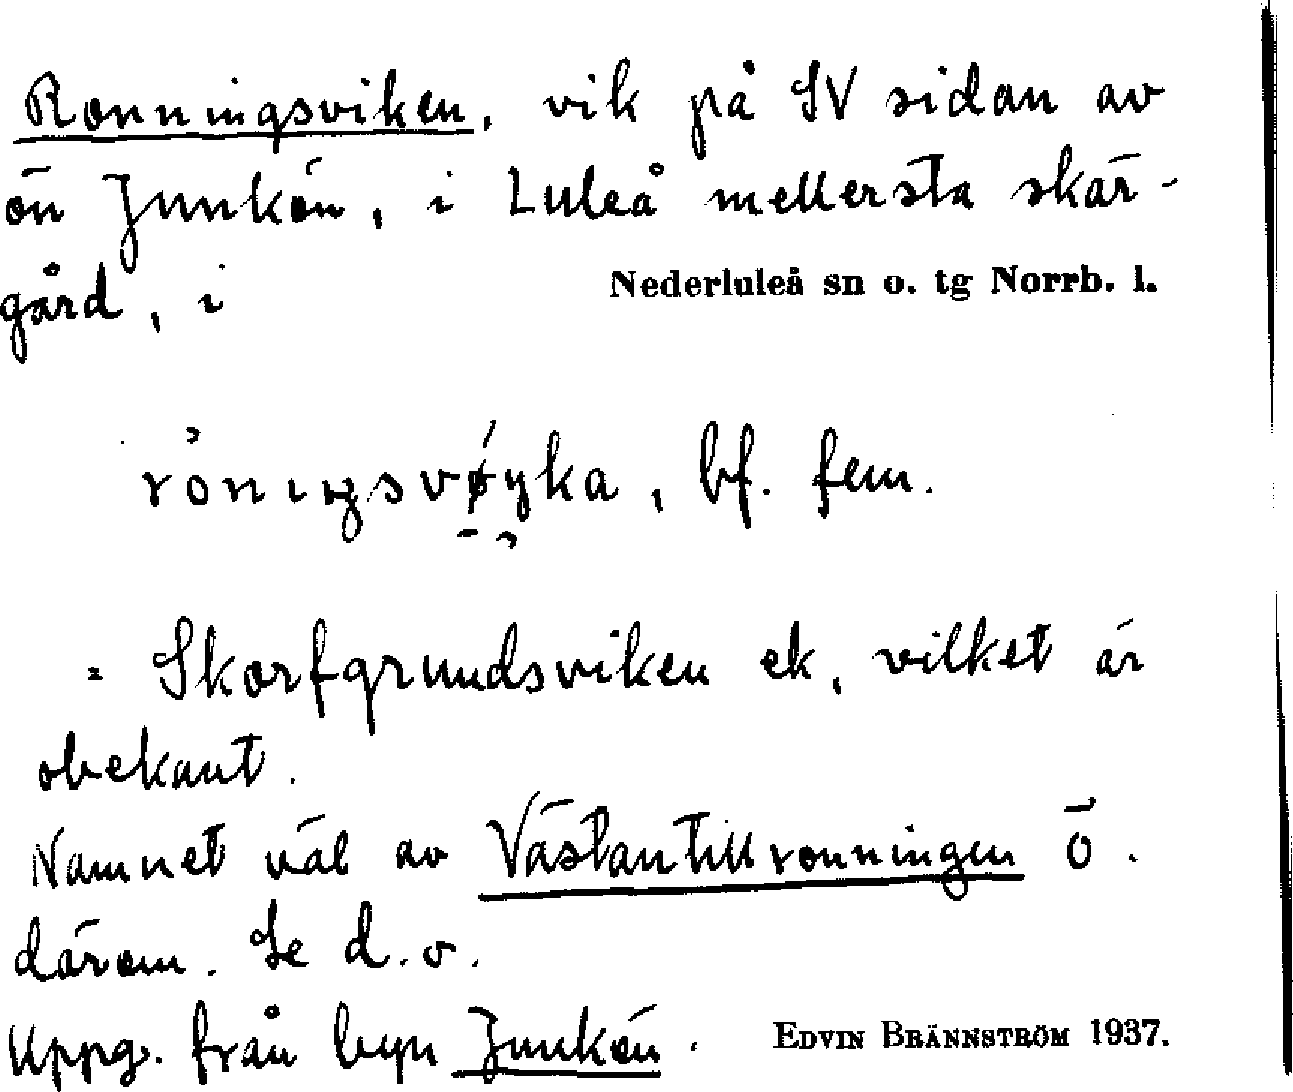 Ronningsviken, vik på SV sidan av
ön Junkön, i Luleå mellersta skär-
gård, i Nederluleå sn o. tg Norrb. l.
, bf. fem.
= Skorfgrundsviken ek, vilket är
obekant.
Namnet väl av Västantillronningen Ö.
därom. Se d.o.
Uppg. från byn Junkön. EDVIN BRÄNNSTRÖM 1937.